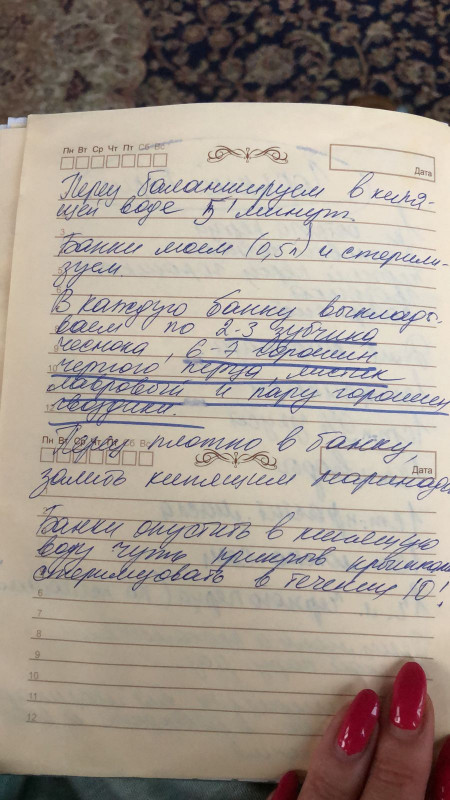 Пн Вт Ср Чт Пт Сб Вс
Дата
Перец баланшируем в кипя-
щей воде 5 минут.
Банки моем (0,5л) и стерили-
зуем
В каждую банку выклады-
ваем по 2-3 зубчика
чеснока, 6-7 горошин
черного перца, листик
лавровый и пару горошин
гвоздики.
Пн Вт Ср Чт Пт Сб Вс
Дата
Перец плотно в банку,
залить кипящим маринадом
Банки опустить в кипящую
воду чуть прикрыв крышками
стерилизовать в течении 10!
6
7
8
9
10
11
12